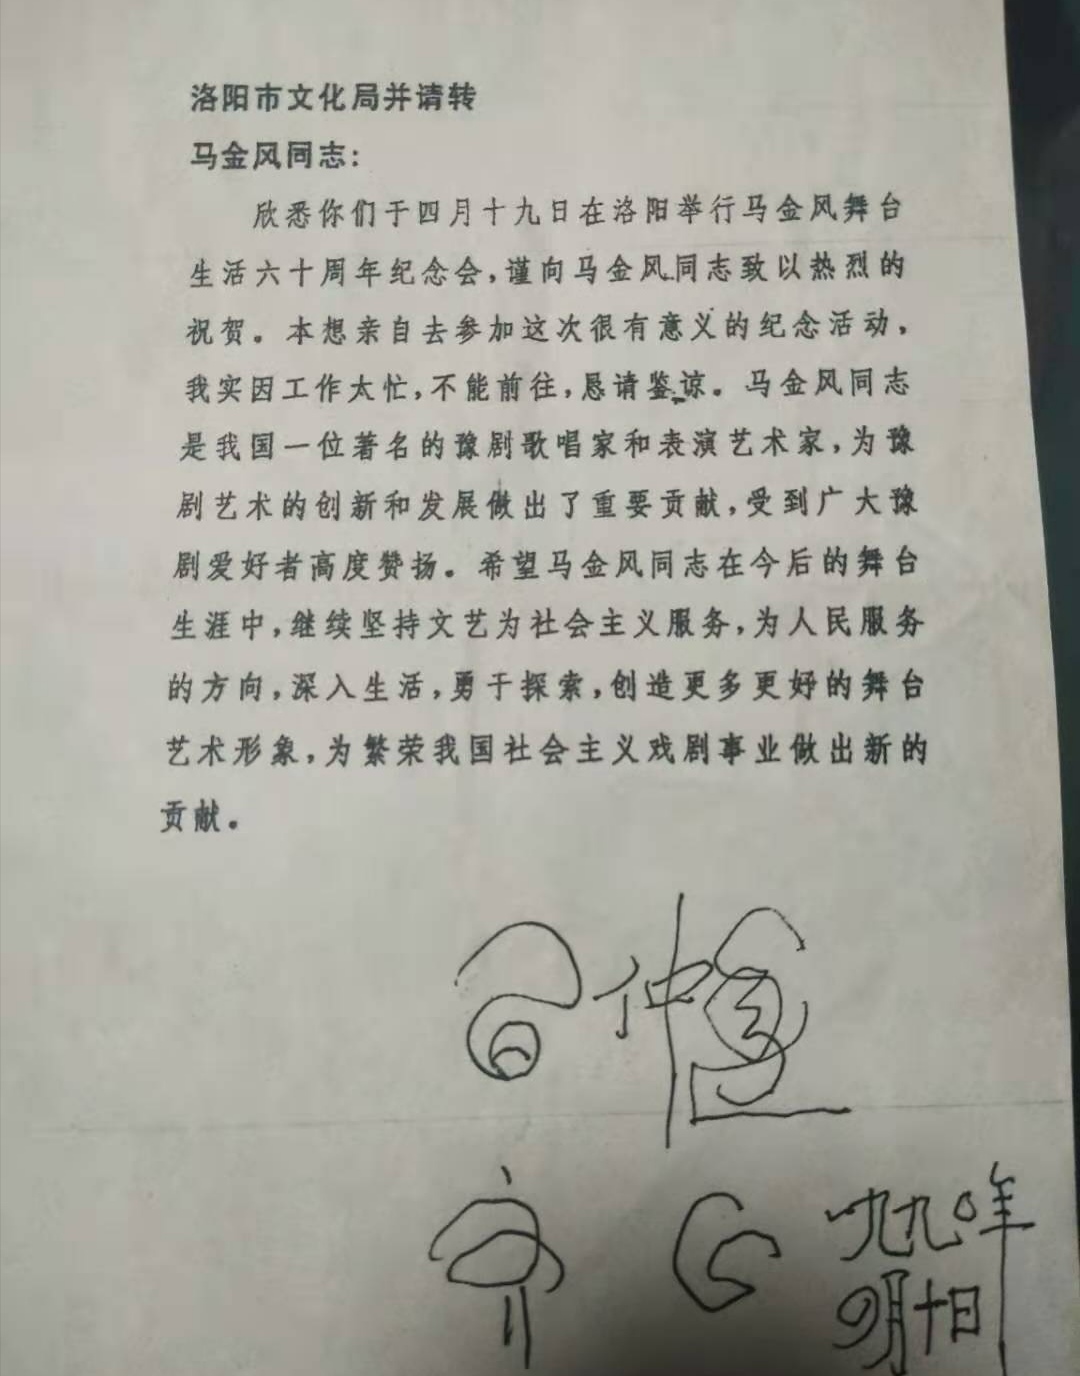 洛阳市文化局并请转
马金风同志：
欣悉你们于四月十九日在洛阳举行马金风舞台
生活六十周年纪念会，谨向马金风同志致以热烈的
祝贺。本想亲自去参加这次很有意义的纪念活动，
我实因工作太忙，不能前往，恳请鉴谅。马金风同志
是我国一位著名的豫剧歌唱家和表演艺术家，为豫
剧艺术的创新和发展做出了重要贡献，受到广大豫
剧爱好者高度赞扬。希望马金风同志在今后的舞台
生涯中，继续坚持文艺为社会主义服务，为人民服务
的方向，深入生活，勇于探索，创造更多更好的舞台
艺术形象，为繁荣我国社会主义戏剧事业做出新的
贡献。
齐心
一九九〇年
四月十日